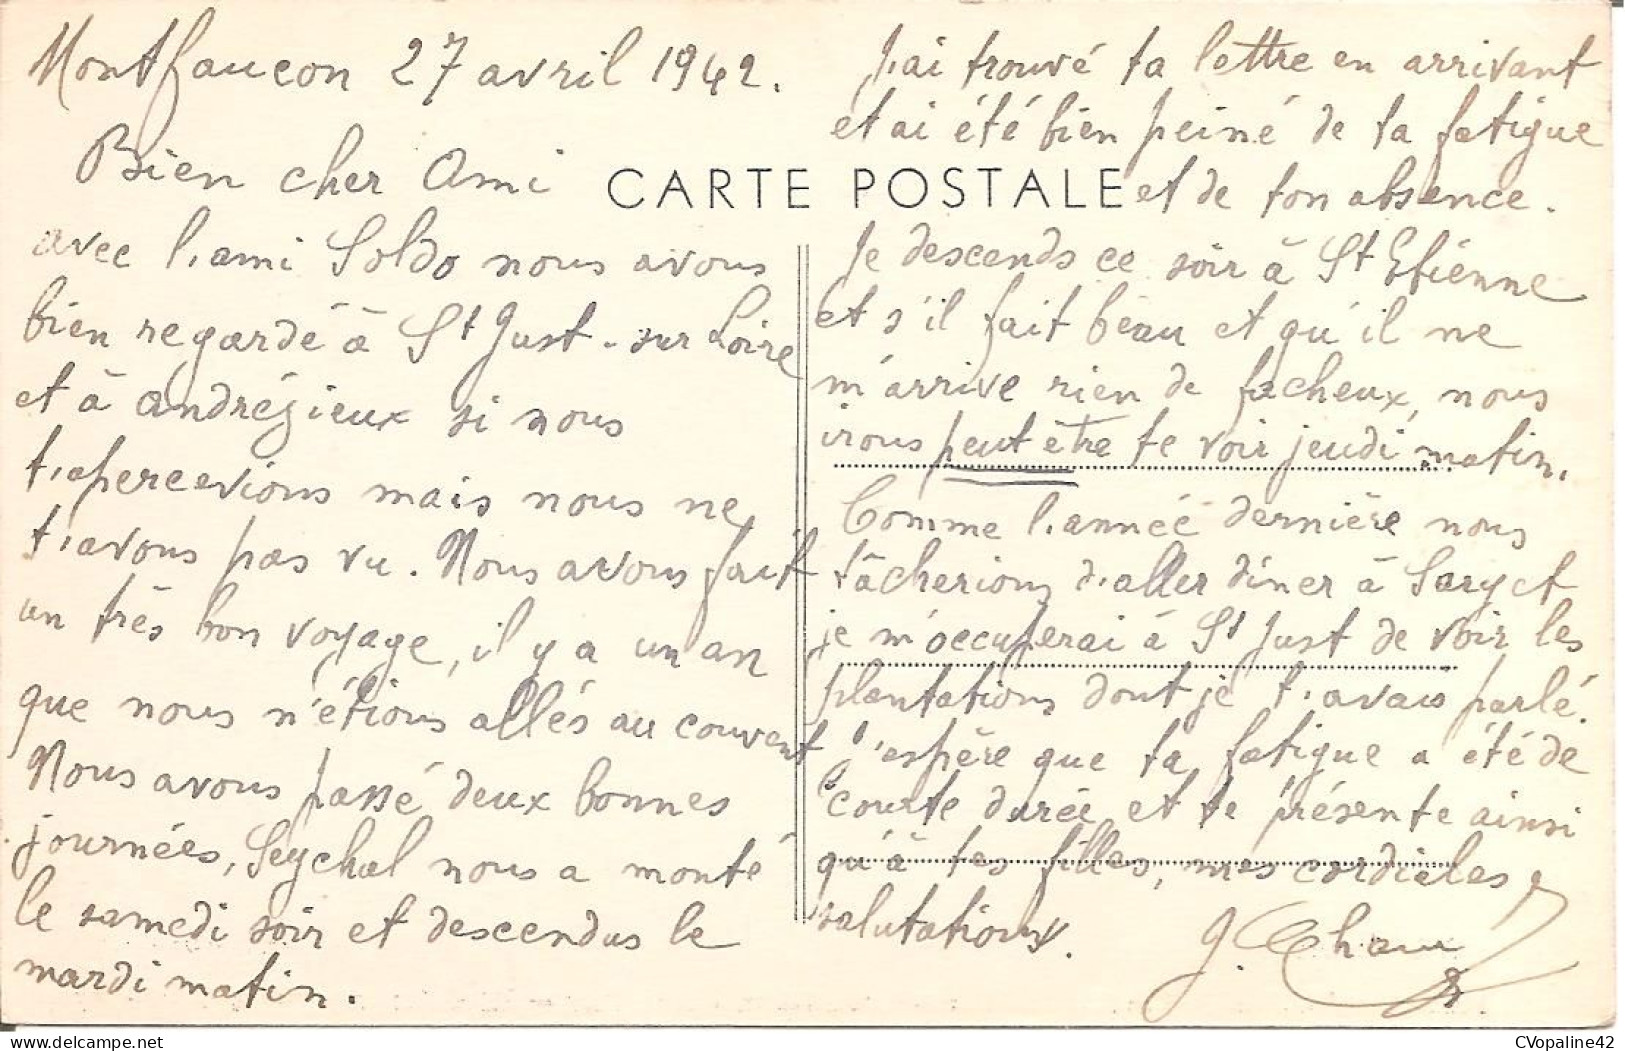 Montfaucon 27 avril 1942.
Bien cher Ami
avec l'ami Soldo nous avons
bien regardé à St Just-sur Loire
et à Andrézieux si nous
t'apercevions mais nous ne
t'avons pas vu. Nous avons fait
un très bon voyage, il y a un an
que nous n'étions allés au couvent
Nous avons passé deux bonnes
journées, Seychal nous a monté
le samedi soir et descendus le
mardi matin.
CARTE POSTALE
J'ai trouvé ta lettre en arrivant
et ai été bien peiné de ta fatigue
et de ton absence.
Je descends ce soir à St Etienne
et s'il fait beau et qu'il ne
m'arrive rien de facheux, nous
irons peut être te voir jeudi matin.
Comme l'année dernière nous
tâcherions d'aller diner à Sary et
je m'occuperai à St Just de voir les
plantations dont je t'avais parlé.
J'espère que ta fatigue a été de
courte durée et te présente ainsi
qu'à tes filles, mes cordiales
salutations.
CVopaline42